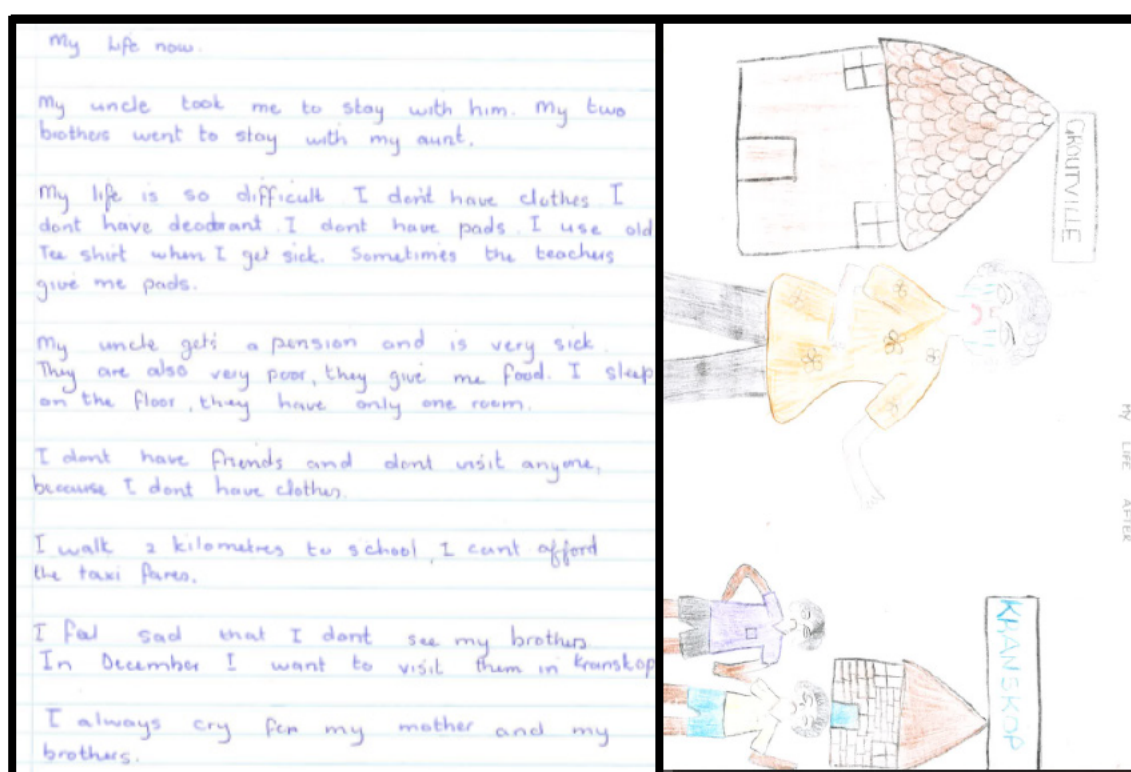 My life now.
My uncle took me to stay with him. My two
brothers went to stay with my aunt.
My life is so difficult I don't have clothes I
dont have deodrant. I dont have pads. I use old
Tee shirt when I get sick. Sometimes the teachers
give me pads.
My uncle gets a pension and is very sick.
They are also very poor, they give me food. I sleep
on the floor, they have only one room.
I dont have friends and dont visit anyone,
because I dont have clothes.
I walk 2 kilometres to school, I cant afford
the taxi fares.
I feel sad that I dont see my brothers.
In December I want to visit them in Kranskop
I always cry for my mother and my
brothers.
GROUTVILLE
MY LIFE AFTER
KRANSKOP